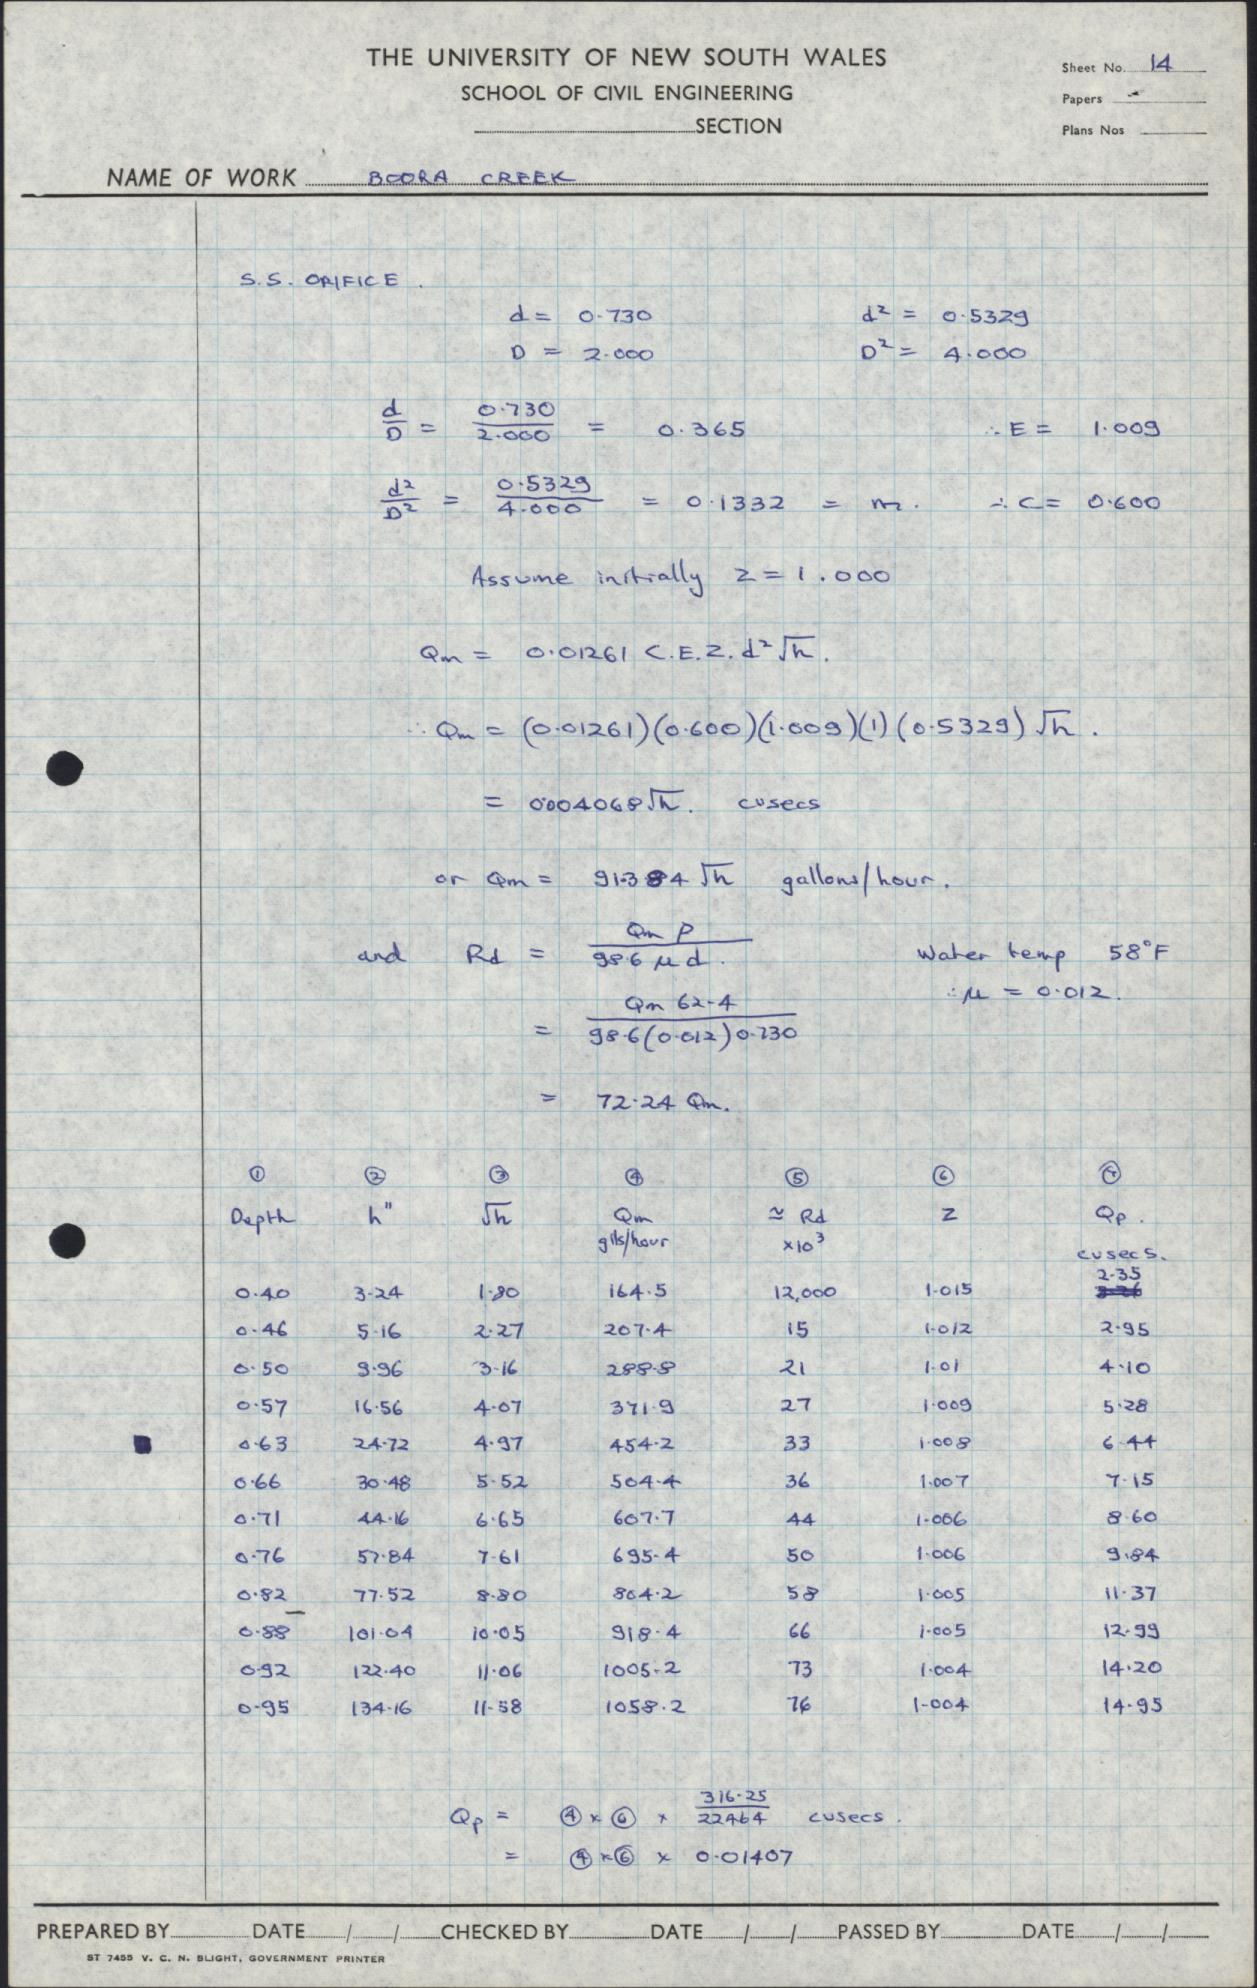 THE UNIVERSITY OF NEW SOUTH WALES
SCHOOL OF CIVIL ENGINEERING
SECTION
Sheet No. 14
Papers -
Plans Nos
NAME OF WORK BOORA CREEK
S.S. ORIFICE.
d = 0.730 d² = 0.5329
D = 2.000 D² = 4.000
d/D = 0.730/2.000 = 0.365 ∴ E = 1.009
d²/D² = 0.5329/4.000 = 0.1332 = m. ∴ C = 0.600
Assume initially Z = 1.000
Qm = 0.01261 C.E.Z. d² √h.
∴ Qm = (0.01261)(0.600)(1.009)(1)(0.5329) √h.
= 0.004068 √h. cusecs
or Qm = 91.384 √h gallons/hour.
and Rd = Qm ρ / 98.6 μ d. Water temp 58°F
∴ μ = 0.012.
= Qm 62.4 / 98.6(0.012)0.730
= 72.24 Qm.
① ② ③ ④ ⑤ ⑥ ⑦
Depth h" √h Qm ≃ Rd Z Qp.
gls/hour ×10³ cusecs.
0.40 3.24 1.80 164.5 12,000 1.015 2.35
0.46 5.16 2.27 207.4 15 1.012 2.95
0.50 9.96 3.16 288.8 21 1.01 4.10
0.57 16.56 4.07 371.9 27 1.009 5.28
0.63 24.72 4.97 454.2 33 1.008 6.44
0.66 30.48 5.52 504.4 36 1.007 7.15
0.71 44.16 6.65 607.7 44 1.006 8.60
0.76 57.84 7.61 695.4 50 1.006 9.84
0.82 77.52 8.80 804.2 58 1.005 11.37
0.88 101.04 10.05 918.4 66 1.005 12.99
0.92 122.40 11.06 1005.2 73 1.004 14.20
0.95 134.16 11.58 1058.2 76 1.004 14.95
Qp = ④ × ⑥ × 316.25/22464 cusecs.
= ④ × ⑥ × 0.01407
PREPARED BY DATE / / CHECKED BY DATE / / PASSED BY DATE / /
ST 7455 V. C. N. BLIGHT, GOVERNMENT PRINTER